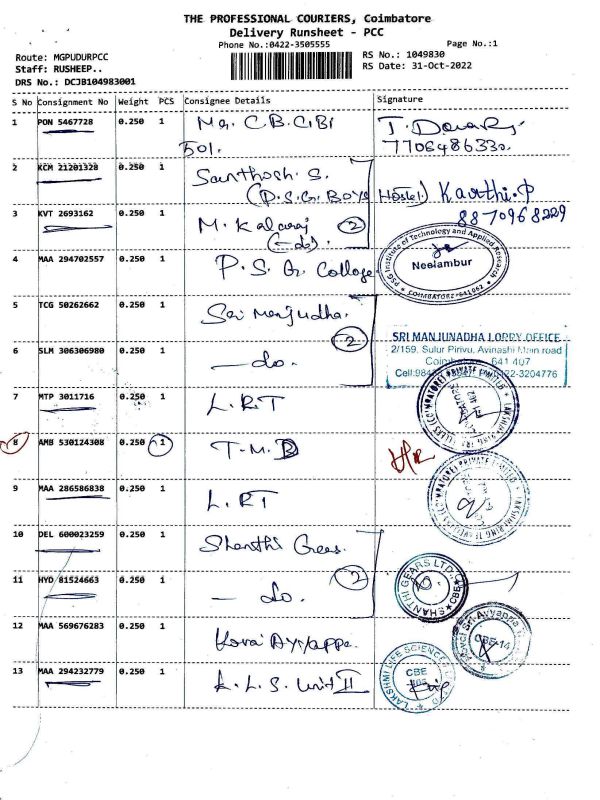 THE PROFESSIONAL COURIERS, Coimbatore
Delivery Runsheet - PCC
Phone No.:0422-3505555
Page No.:1
Route: MGPUDURPCC
RS No.: 1049830
Staff: RUSHEEP..
RS Date: 31-Oct-2022
DRS No.: DCJB104983001
S No Consignment No Weight PCS Consignee Details Signature
1 PON 5467728 0.250 1
501. 7706486330.
2 KCM 21201328 0.250 1 Santhosh. S.
(P.S.G. BOYS Hostel.) Karthi.P
8870968229
3 KVT 2693162 0.250 1 M. Kalaraj 2
(-do)
4 MAA 294702557 0.250 1 P.S.G. College
PSG Institute of Technology and Applied Research
Neelambur
COIMBATORE-641062
5 TCG 50262662 0.250 1 Sri Manjudha.
2
SRI MANJUNADHA LORRY OFFICE
2/159, Sulur Pirivu, Avinashi Main road
6 SLM 306306980 0.250 1 - do.
7 MTP 3011716 0.250 1 L.R.T
8 AMB 530124308 0.250 1 T.M.B
9 MAA 286586838 0.250 1 L.RT
10 DEL 600023259 0.250 1 Shanthi Gears.
2
11 HYD 81524663 0.250 1 - do.
SHANTHI GEARS LTD. CBE
12 MAA 569676283 0.250 1 Kovai Ayyappa.
CBE-14
13 MAA 294232779 0.250 1 K.L.S. Unit II
LAKSHMI LIFE SCIENCE
CBE